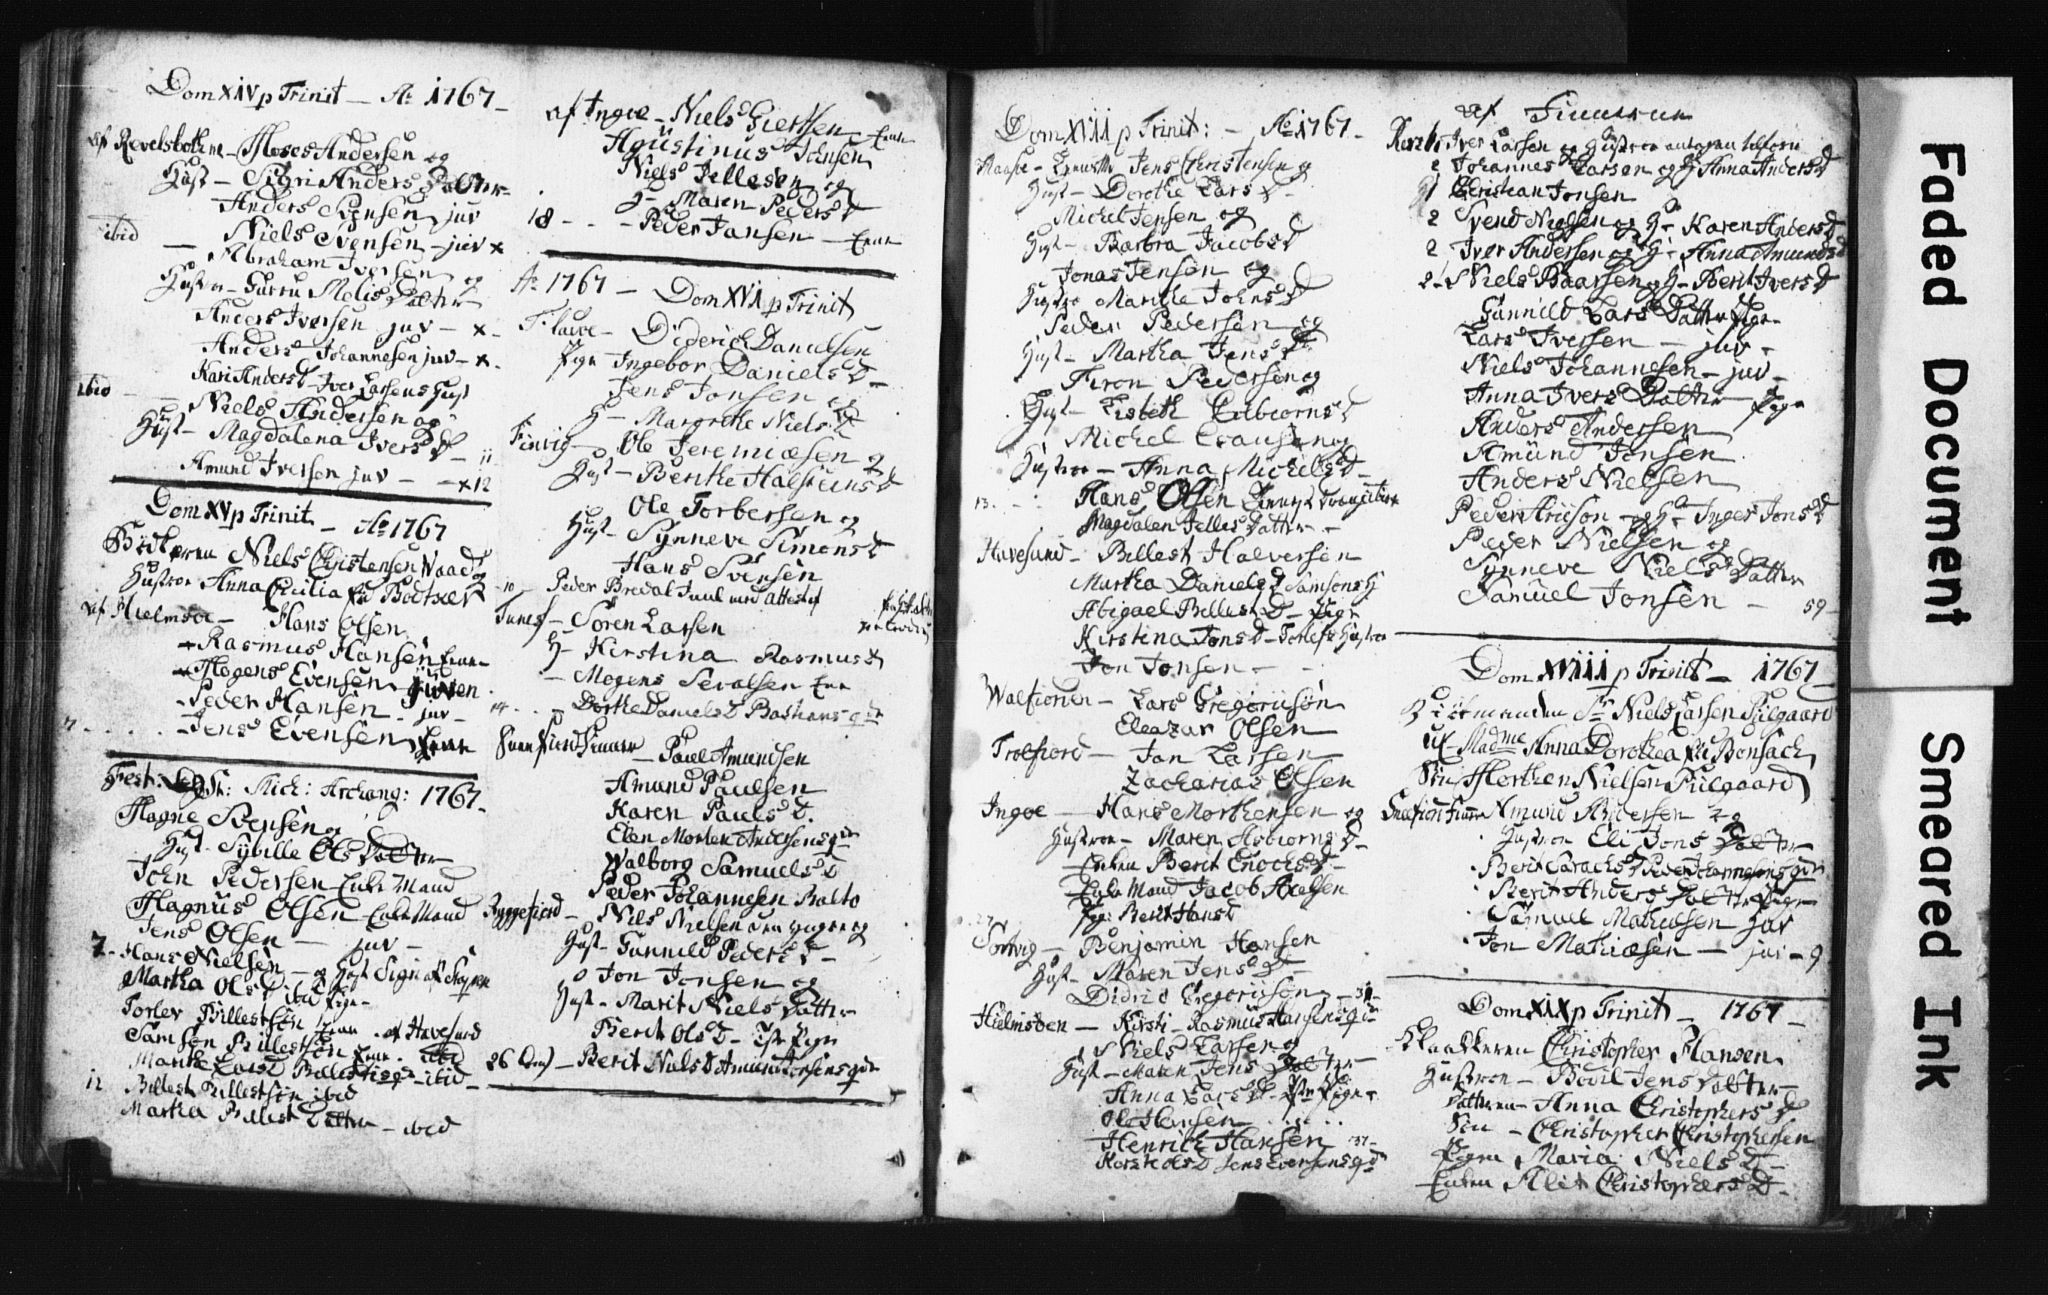 Dom XIV p Trinit — Ao 1767 —
af Revelsbotne — Moses Andersen og
Hust — Sigri Anders Datter —
Anders Svensen juv
ibid — Niels Svensen — juv x
Abraham Iversen og
Hustro — Gurru Melis Datter
Anders Iversen juv — x —
Anders Johannesen juv — x
Kari Andersd — Iver Larsens Hust
ibid — Niels Andersen og
Hust — Magdalena Ivers D — 11
Amund Iversen juv — x 12
Dom XV p Trinit — Ao 1767
Niels Christensen Waad og
Hustroe Anna Cicilia
af Hielmsøe — Hans Olsen
Rasmus Hansen Enke
Mogens Evensen Juven
Peder Hansen — juv —
7 — Jens Evensen Enke
Fest: St: Mich: Archang: 1767
Magne Svensen og
Hust — Sybille Ols Datter
John Pedersen Enke Mand
Magnus Olsen — Enke Mand
Jens Olsen — juv —
7 — Hans Nielsen — og Hust Signe af
Martha Ols D ibid Pige —
Torlev Billestsøn Enke — af Havesund
Samson Billestsøn Enke — ibid
Marthe — ibid —
12 Billest Billestsøn ibid
Martha Billest Datter — ibid
af Ingøe — Niels Giertsen — Enke
Augustinus Johnsen
Niels Jellesen og
H — Maren Peders D
18 — Peder Jansen — Enke
Ao 1767 — Dom XVI p Trinit
Diderich Danielsen
Pige Ingebor Daniels D —
Jens Jonsen og
H — Margrethe Niels D
Finvig — Ole Jeremiæsen og
Hust — Berithe Halsteens D
Ole Torbersen og
Hust — Synneve Simons D
Hans Svensen
10 — Peder Bredal Juul med Attest af
Tunes — Søren Larsen
H — Kirstina Rasmus D
— Mogens Sevalsen Enke
14 — Dorthe Daniels D Bastians qde
— Paul Amundsen
Amund Paulsen
Karen Pauls D.
Elen Morten Andersens qde
Walborg Samuels D
Peder Johannesen Balto
Ryggefiord — Niels Nielsen den yngre og
Hust — Gunnild Peders D —
Jon Jonsen og
Hust — Marit Niels Datter
Berit Ols D — Pige
26 — Berit Niels D Amund Jonsens qde
Dom XVII p Trinit: — Ao 1767 —
Maasøe — Jens Christensen og
Hust — Dorothe Lars D —
Michel Jensen og
Hust — Barbra Jacobs D
Jonas Jensen og
Hustro Marithe Johns D
Peder Pedersen og
Hust — Martha Jens D
Firon Pedersen og
Hust — Lisbeth Esbiorns D
Michel Clausen og
Hustroe — Anna Michels D —
13 — Hans Olsen
Magdalen Jelles Datter —
Havesund — Billest Halversen
Martha Daniels D Samsons H
Abigael Billest D — Pige
Kirstina Jons D — Torlefs Hustroe
Jon Jonsen —
Walfiorden — Lars Gregoriisøn
Eleazar Olsen
Trolfiord — Jan Larsen
Zacharias Olsen
Ingøe — Hans Morthensen og
Hustroe — Maren Asbiorns D —
Enken Berit Enochs D —
Enke Mand Jacob Axelsen
27 — Pig: Berit Hans D
Sortvig — Benjamin Hansen
Hust — Maren Jens D —
Didrid Gregoriisøn — 31 —
Hielmsøen — Kirsti — Rasmus Hansens qde
Niels Larsen og
Hust — Maren Jens Datter —
Anna Lars D — Pige —
Ole Hansen
Henrich Hansen — 37 —
Korste Ols D Jens Evensens qde
af Finnerne
Iver Larsen og Hustroe
2 Johannes Larsen og H Anna Anders D
1 Christian Jonsen
2 Svend Nielsen og H — Karen Anders D
2 Iver Andersen og H — Anna Amunds D
2 — Niels Baarsen og H — Berit Ivers D
Gunnild Lars Datter Pige —
Lars Iversen — juv —
Niels Johannesen — juv —
Anna Ivers Datter Pige
Anders Andersen
Amund Jonsen
Anders Nielsen
Peder Aricson og H — Inger Jons D
Peder Nielsen og
Synneve Niels Datter
Samuel Jonsen — 59 —
Dom XVIII p Trinit — 1767 —
Sr Niels Larsen Pilgaard
ux — Madme Anna Dorothea Bonsach
Søn Morthen Nielsen Pilgaard
Amund Andersen og
Hustroe Eli Jons Datter
Berit Sarachs D Peder Johannesens qde
Berit Anders Datter Pige
Samuel Mathiesen juv
Jon Mathiæsen — juv — 9
Dom XIX p Trinit — 1767 —
Klokkeren Christopher Hansen
Hustroe — Bodil Jens Datter —
Datteren — Anna Christophers D
Søn — Christopher Christophersen
Pigen Maria Niels D —
Enken Alet Christophers D —
Faded Document
Smeared Ink